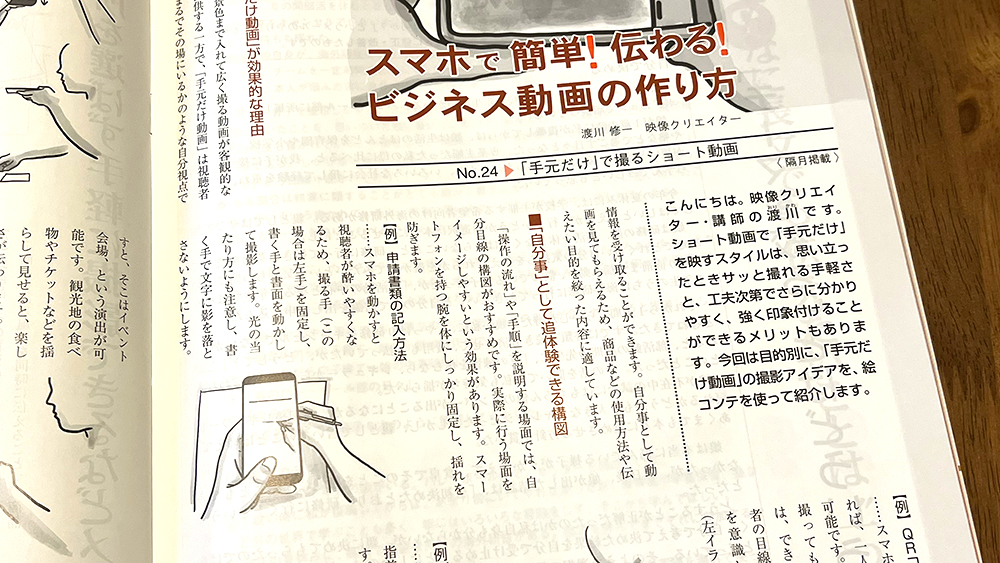 スマホで 簡単! 伝わる!
ビジネス動画の作り方
渡川 修一 映像クリエイター
〈隔月掲載〉
No.24 ▶ 「手元だけ」で撮るショート動画
こんにちは。映像クリエイ
ター・講師の渡川です。
ショート動画で「手元だけ」
を映すスタイルは、思い立っ
たときサッと撮れる手軽さ
と、工夫次第でさらに分かり
やすく、強く印象付けること
ができるメリットもありま
す。今回は目的別に、「手元だ
け動画」の撮影アイデアを、絵
コンテを使って紹介します。
け動画」が効果的な理由
景色まで入れて広く撮る動画が客観的な
供する一方で、「手元だけ動画」は視聴者
まるでその場にいるかのような自分視点で
情報を受け取ることができます。自分事として動
画を見てもらえるため、商品などの使用方法や伝
えたい目的を絞った内容に適しています。
■「自分事」として追体験できる構図
「操作の流れ」や「手順」を説明する場面では、自
分目線の構図がおすすめです。実際に行う場面を
イメージしやすいという効果があります。スマー
トフォンを持つ腕を体にしっかり固定し、揺れを
防ぎます。
【例】申請書類の記入方法
……スマホを動かすと
視聴者が酔いやすくな
るため、撮る手（この
場合は左手）を固定し、
書く手と書面を動かし
て撮影します。光の当
たり方にも注意し、書
く手で文字に影を落と
さないようにします。
【例】QR
……スマホ
れば、一人
可能です。
撮っても
は、でき
者の目線
を意識
（左イラ
【例
指差
す。
すと、そこはイベント
会場、という演出が可
能です。観光地の食べ
物やチケットなどを揺
らして見せると、楽し